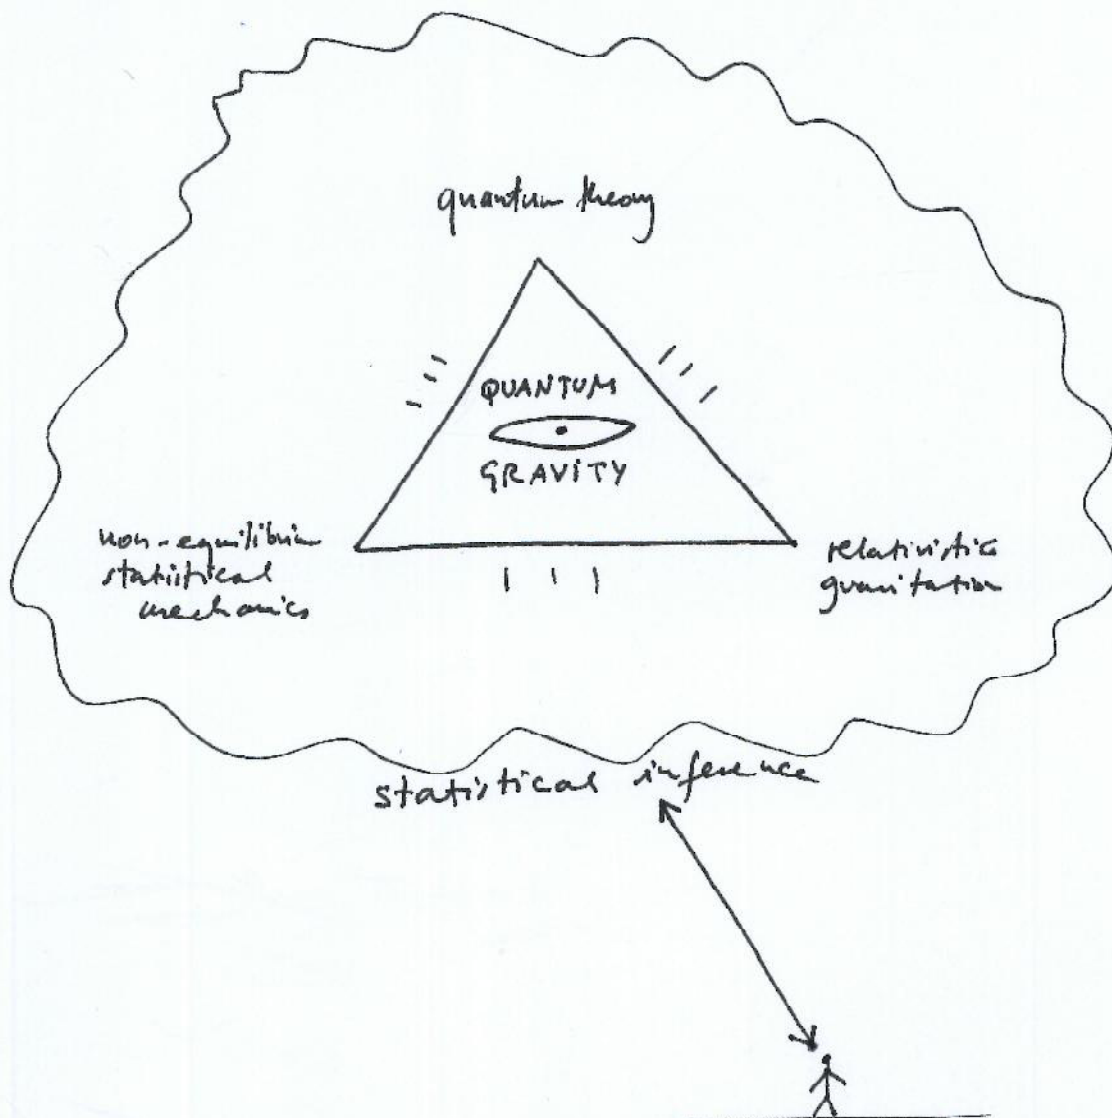 quantum theory
QUANTUM
GRAVITY
non-equilibrium
statistical
mechanics
relativistic
gravitation
statistical inference